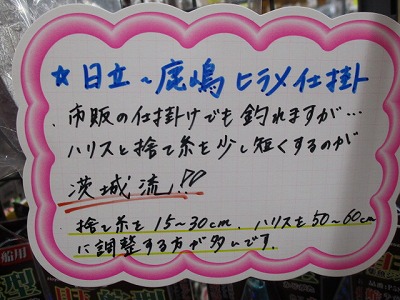 ☆日立〜鹿嶋ヒラメ仕掛
市販の仕掛けでも釣れますが…
ハリスと捨て糸を少し短くするのが
茨城流!!
捨て糸を15〜30cm、ハリスを50〜60cm
に調整する方が多いです。
船用